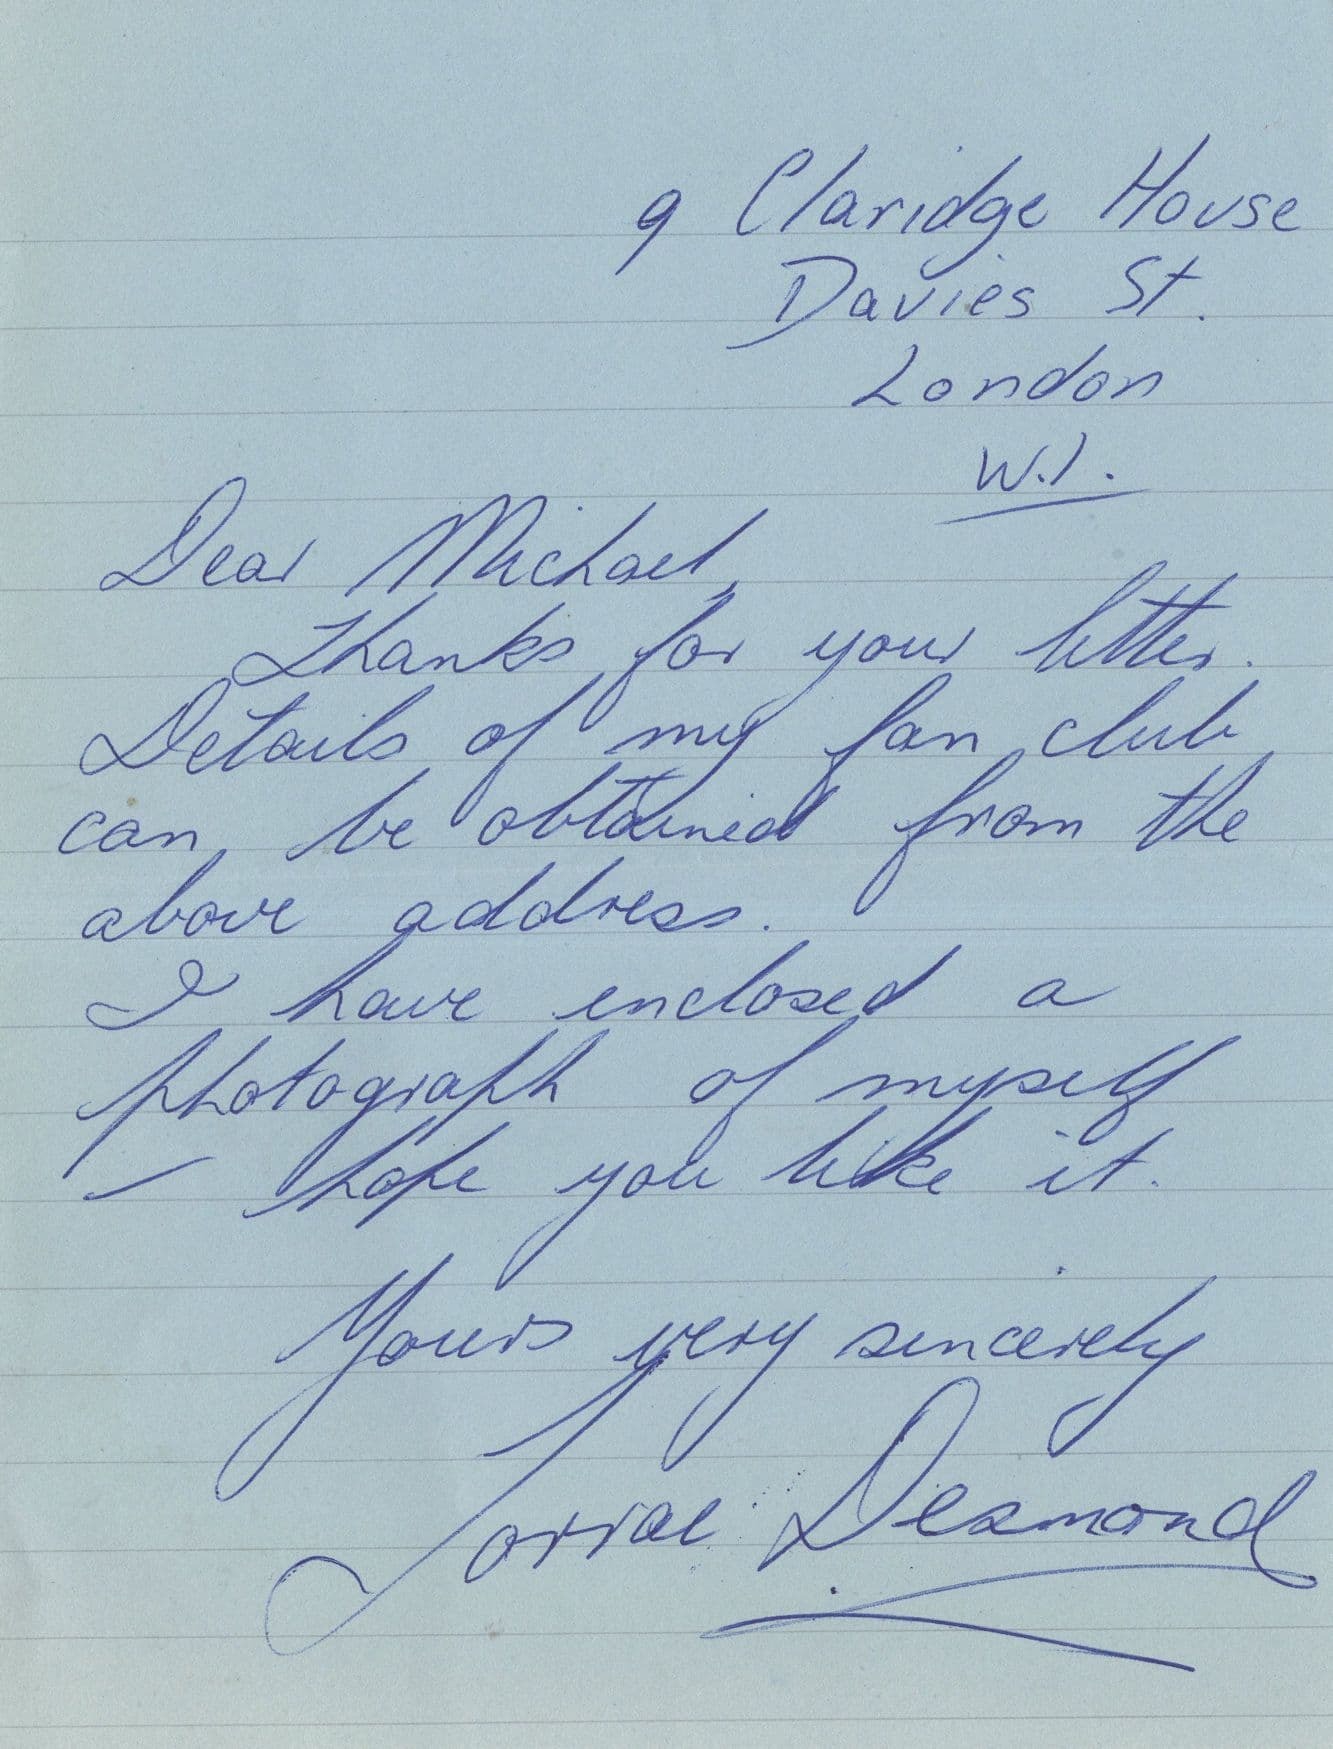 9 Claridge House
Davies St.
London
W.1.
Dear Michael,
Thanks for your letter.
Details of my fan club
can be obtained from the
above address.
I have enclosed a
photograph of myself
– hope you like it.
Yours very sincerely
Lorrae Desmond